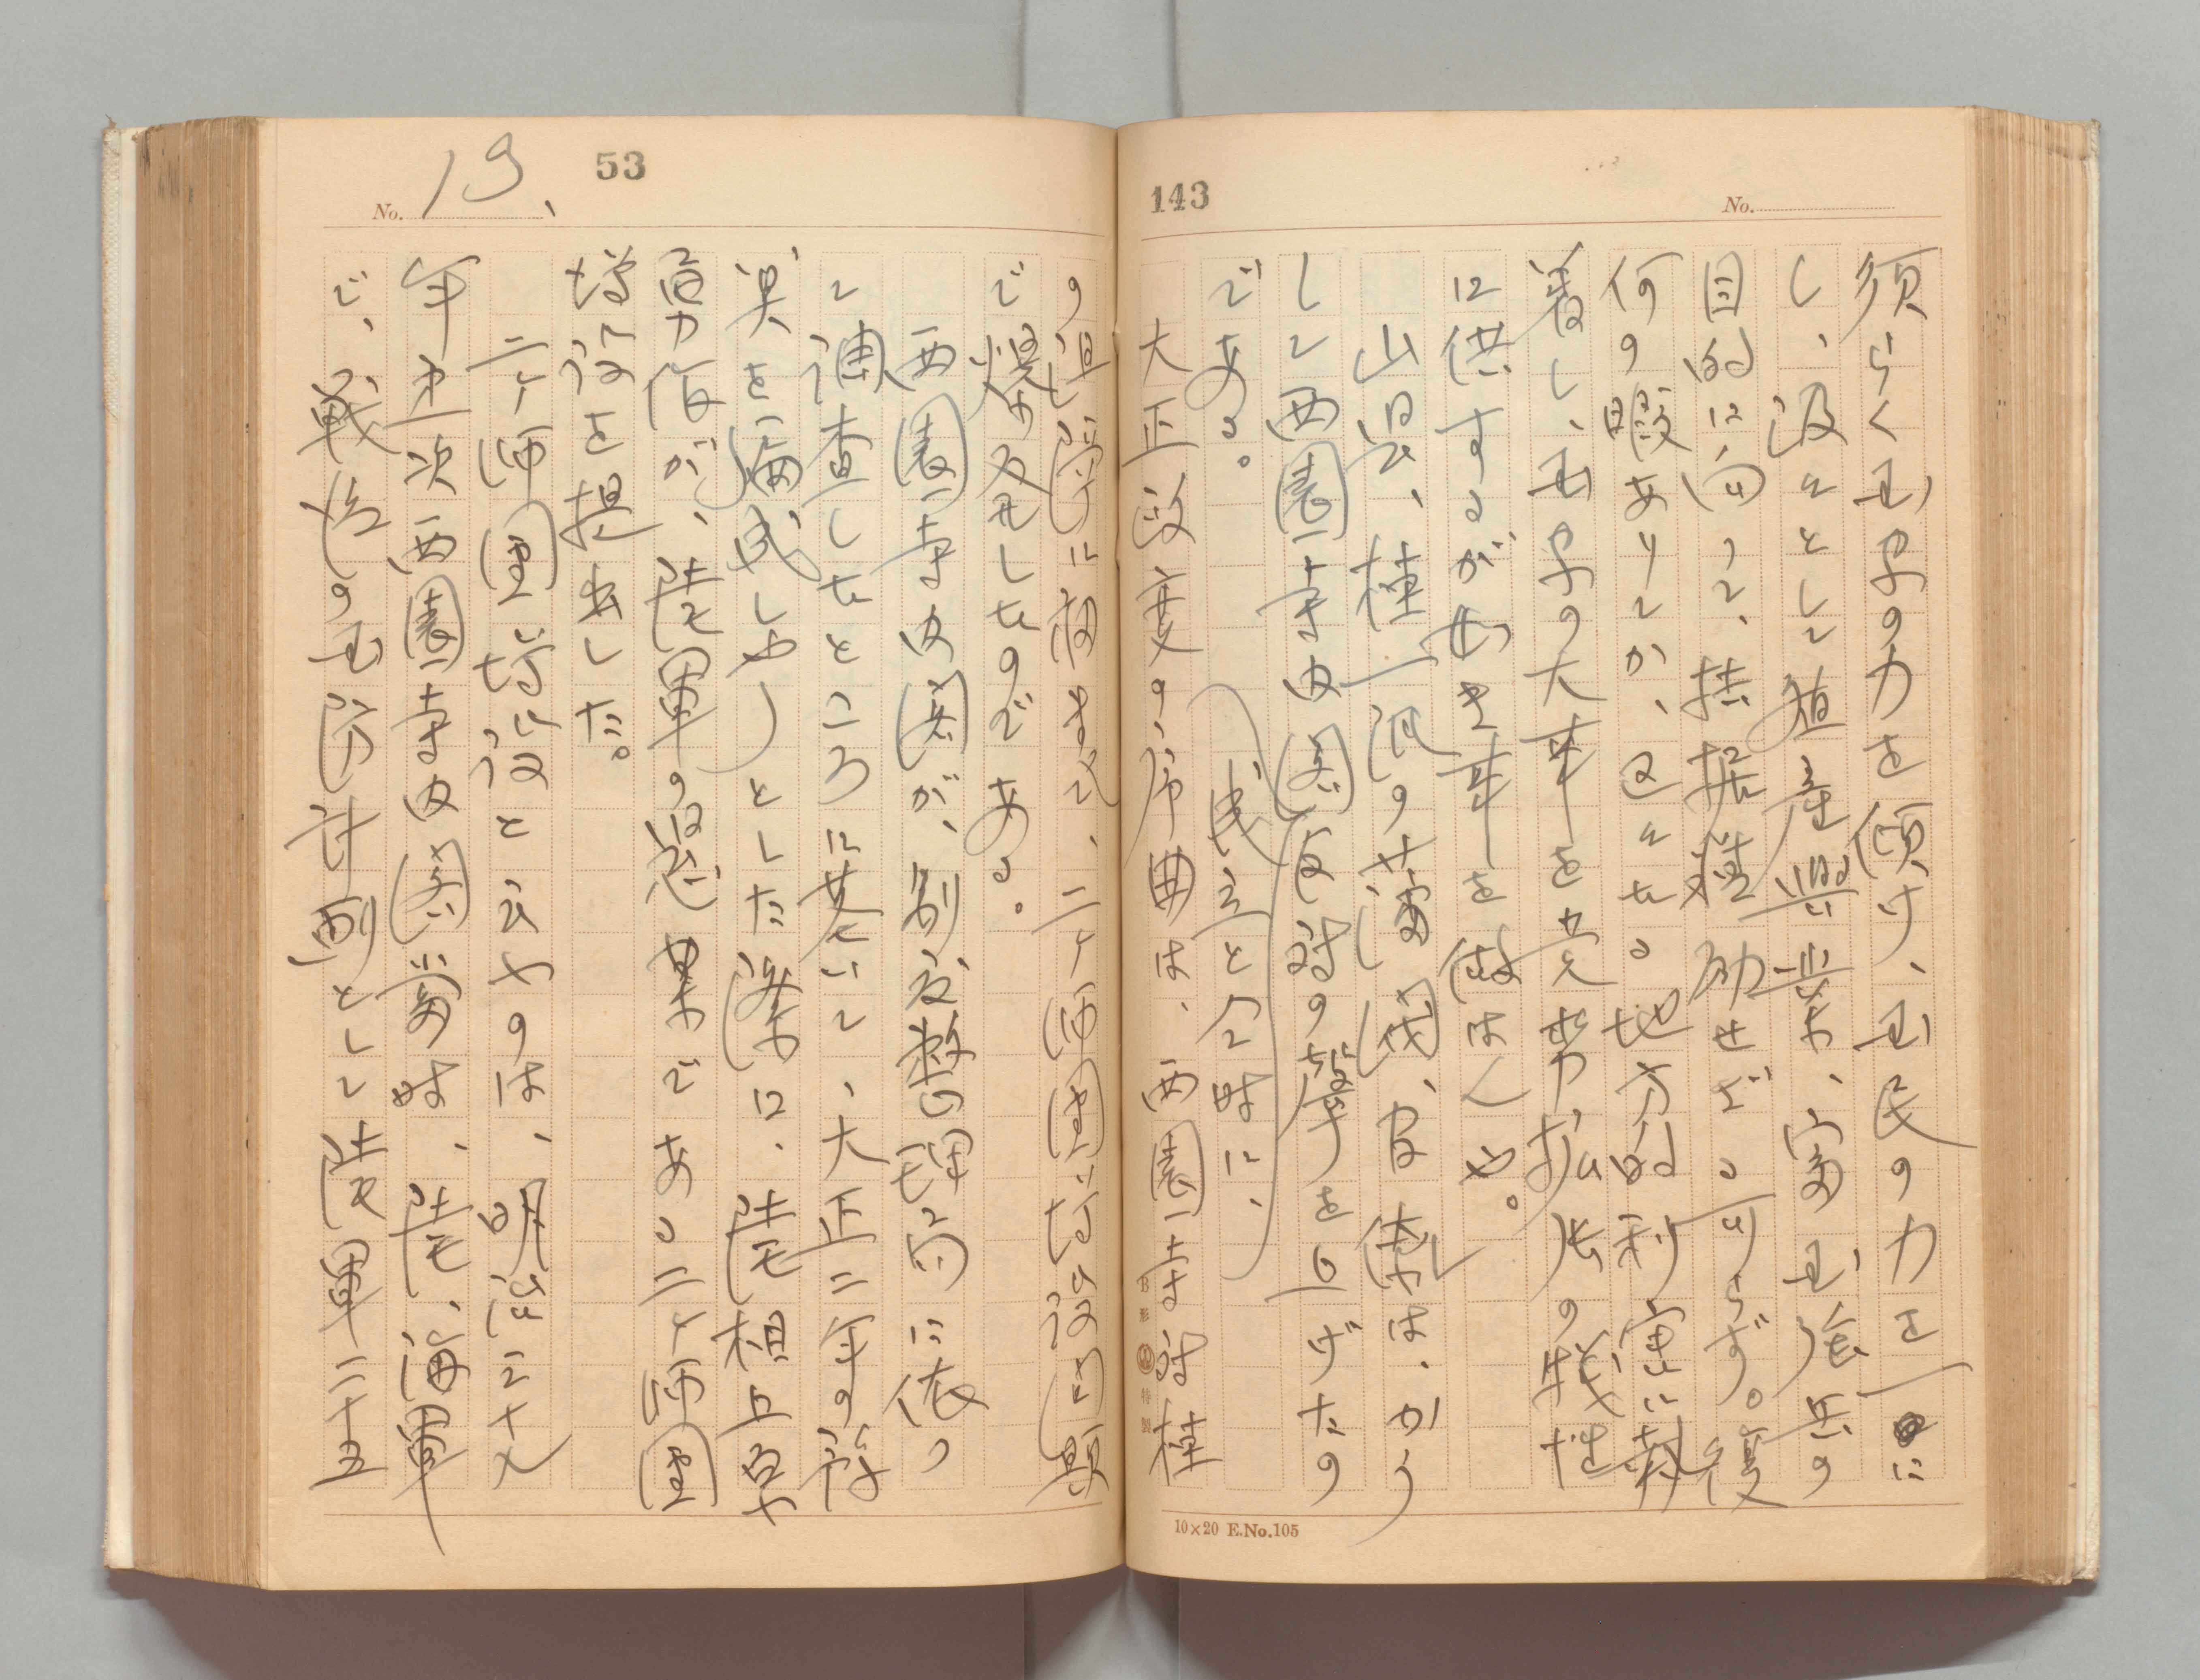 143
No.
須らく国家の力を傾け、国民の力を一に
し、汲々として殖産興業、富国強兵の
目的に向つて、拮据黽勉せざる可らず。復
何の暇ありてか、区々たる地方的利害に執
着し、国家の大事を党勢拡張の犠牲
に供するが如き事を做さんや。
山県、桂一派の藩閥、官僚は、かう
して西園寺内閣反対の聲を上げたの
である。
民立と合同に、
大正政変の序曲は、西園寺対桂
10×20 E.No.105
53
No. 13、
の確執に初まり、二ケ師団増設問題
で爆発したのである。
西園寺内閣が、制度整理局に依つ
て調査したところに基いて、大正二年の予
算を編成しやうとした際に、陸相上原
勇作が、陸軍の提案である二ケ師団
増設を提出した。
二ケ師団増設と云ふのは、明治三十九
年第一次西園寺内閣当時、陸、海軍
で、戦後の国防計画として陸軍二十五